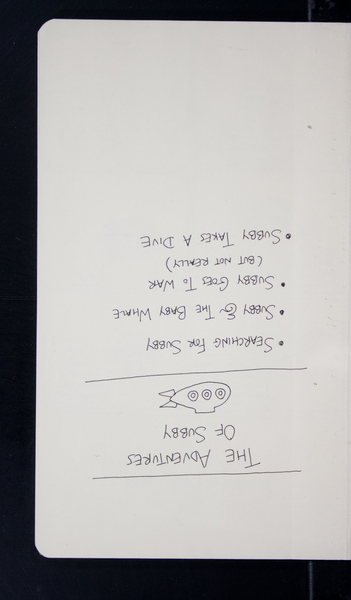 THE ADVENTURES
OF SUBBY
• SEARCHING FOR SUBBY
• SUBBY & THE BABY WHALE
• SUBBY GOES TO WAR
(BUT NOT REALLY)
• SUBBY TAKES A DIVE